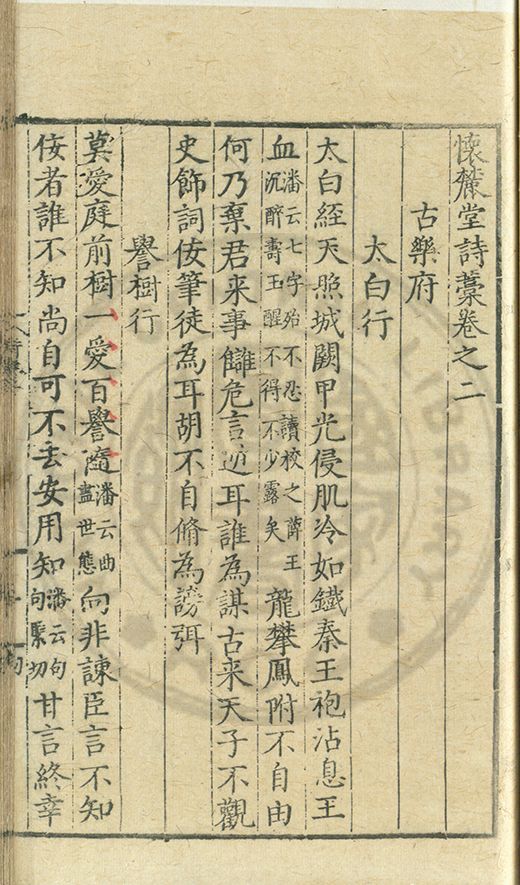 懷麓堂詩藁卷之二
古樂府
太白行
太白經天照城闕甲光侵肌冷如鐵秦王袍沾息王
血潘云七字殆不忍讀校之薛王沉醉壽王醒不得不少露矣龍攀鳳附不自由
何乃棄君来事讎危言逆耳誰為謀古来天子不觀
史飾詞佞筆徒為耳胡不自脩為謗弭
譽樹行
莫愛庭前樹一愛百譽隨潘云曲盡世態向非諫臣言不知
佞者誰不知尚自可不去安用知潘云句句緊切甘言終幸